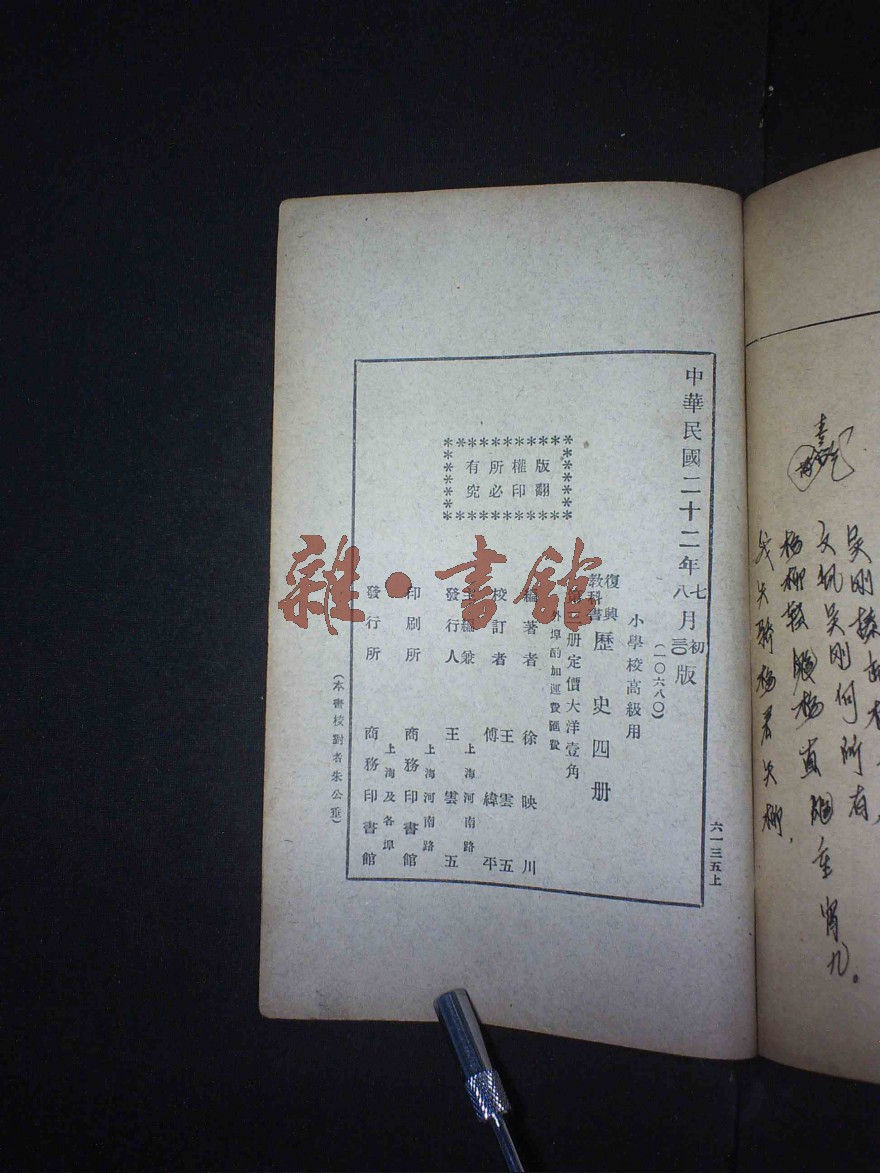 中華民國二十二年七月初版
八 三〇
(一〇六八〇)
小學校高級用
復興
教科書
歷史四册
第三册定價大洋壹角
外埠酌加運費匯費
編著者 徐映川
校訂者 王雲五
傅緯平
主編兼
發行人 王雲五
上海河南路
印刷所 商務印書館
上海及各埠
發行所 商務印書館
(本書校對者朱公垂)
版權所有
翻印必究
六一三五上
雜·書館
文佩吴刚何所有